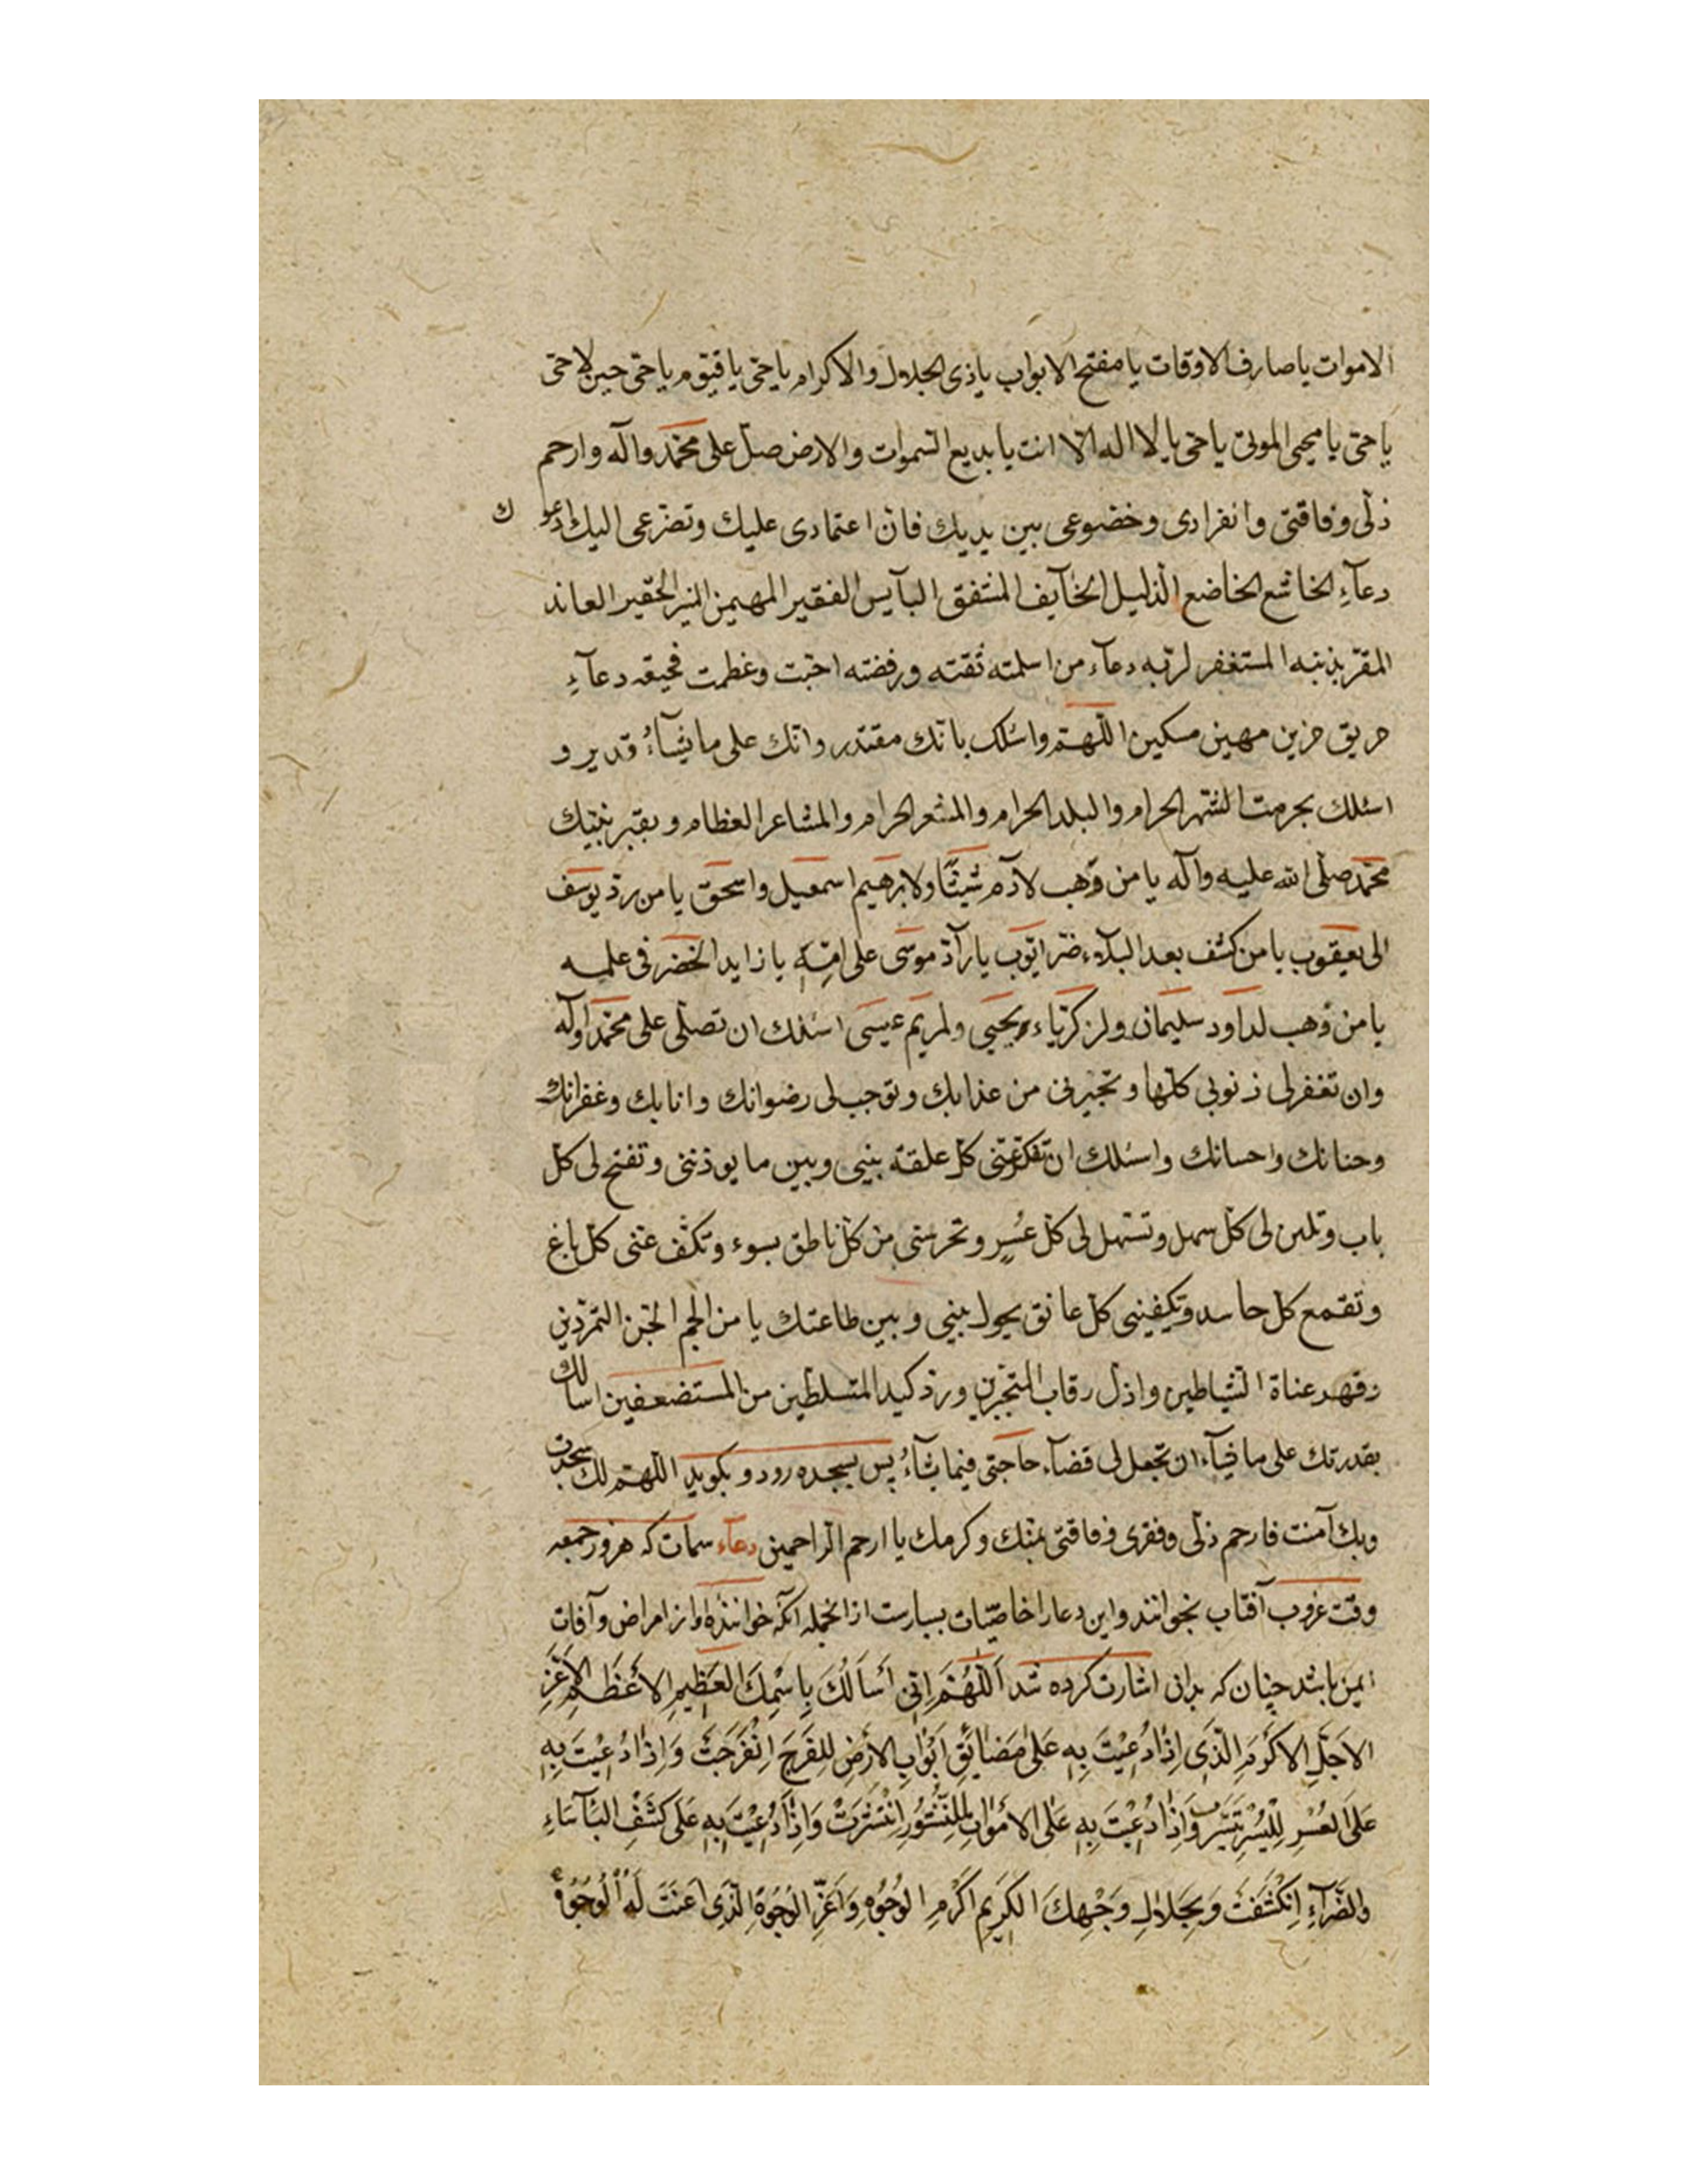 الاموات يا صارف الاوقات يا مفتح الابواب يا ذى الجلال والاكرام يا حىّ يا قيّوم يا حىّ حين لا حىّ
يا حىّ يا محيى الموتى يا حىّ يا لا اله الّا انت يا بديع السّموات والارض صلّ على محمّد وآله وارحم
ذلّى وفاقتى وانفرادى وخضوعى بين يديك فانّ اعتمادى عليك وتضرّعى اليك ادعوك
دعآءِ الخاشع الخاضع الذليل الخآيف المشفق البآيس الفقير المهيمن الحقير العاند
المقرّ بذنبه المستغفر لربّه دعآء من اسلمته ثقته ورفضته احبّت وغظمت فجيعه دعآءِ
حريق حزين مهين مسكين اللّهمّ واسئلك بانّك مقتدر وانّك على ما يشآءُ قدير و
اسئلك بحرمت الشّهر الحرام والبلد الحرام والمشعر الحرام والمشاعر العظام وبقبر نبيّك
محمّد صلّى الله عليه وآله يا من وَهب لآدم شيثًا ولابرهيم اسمعيل واسحق يا من ردّ يوسف
الى يعقوب يا من كشف بعد البلآء ضرّ ايّوب يا رآدّ موسى على امّهِ يا زايد الخضر فى علمه
يا من وَهب لداود سليمان ولزكريّاء ويحيى ولمريم عيسى اسئلك ان تصلّى على محمّد وآله
وان تغفر لى ذنوبى كلّها وتجيرنى من عذابك وتوجب لى رضوانك وانابك وغفرانك
وحنانك واحسانك واسئلك ان تفكّ عنّى كلّ علقة بينى وبين ما يوذننى وتفتح لى كلّ
باب وتلين لى كلّ سهل وتسّهل لى كلّ عُسرٍ وتحرسنى من كلّ ناطق بسوء وتكفّ عنّى كلّ باغ
وتقمع كلّ حاسد وتكيفينى كلّ عانق يحول بينى وبين طاعتك يا من الجم الجّن التمرّدين
وقهر عناة الشّياطين واذلّ رقاب المتجبّرين وردّ كيد المتسلطّين من المستضعفين اسالك
بقدرتك على ما ان تجعل لى قضآء حآجتى فيما يشآءُ پس بسجده رود وبكويد اللّهمّ لك سجدت
وبك آمنت فارحم ذلّى وفقرى وفاقتى بمنّك وكرمك يا ارحم الرّاحمين دعآء سمات كه هر روز جمعه
وقت غروب آفتاب بخوانند واين دعا را خاصّيات بسيارست از انجمله آنكه خواننده او از امراض وآفات
ايمن باشد چنان كه بدانى اشارت كرده شد اَللّهُمَّ اِنّى أَسأَلُكَ بِاِسْمِكَ العَظيمِ الاَعْظَمِ الاَعَزِّ
الاَجَلِّ الاَكرَمِ الَّذى اِذا دُعيْتَ بِهِ عَلى مَضايِقِ اَبْوابِ الاَرْضِ لِلفَرَجِ اِنْفَرَجَتْ وَاِذا دُعيْتَ بِهِ
عَلَى العُسْرِ لِلْيُسْرِ تَيَسَّرت وَاِذا دُعيْتَ بِهِ عَلَى الاَمْواتِ لِلنُّشُورِ اِنْتَشَرَتْ وَاِذا دُعيْتَ بِهِ عَلى كَشْفِ البَآسَاءِ
وَالضّرَّآءِ اِنْكَشَفَتْ وَبِجَلالِ وَجْهِكَ الكَريمِ اَكْرَمِ الوُجُوهِ وَاَعَزِّ الوُجُوةِ الَّذى اعَنَتْ لَهُ الوُجُوهُ